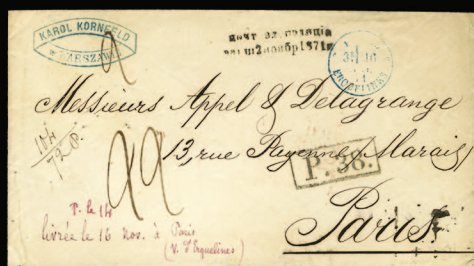 KAROL KORNFELD
WARSZAWA
2 ноября 1871
3 16
ERQUELINES
Messieurs Appel & Delagrange
13, rue Payenne Marais
P. 38.
Paris
22
P. le 14
livrée le 16 Nov. à Paris
(v. d'Erquelines)